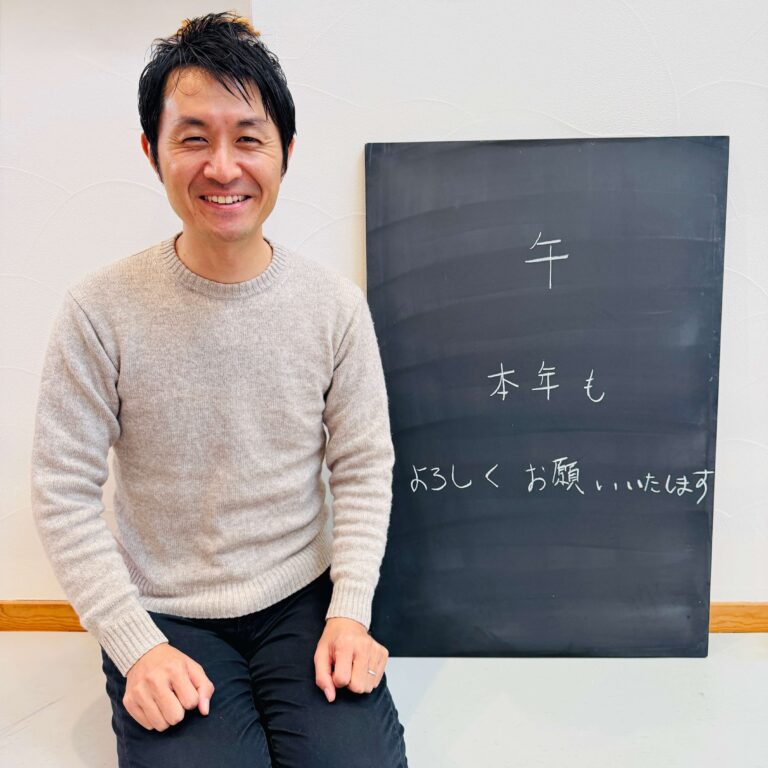 午
本年も
よろしく お願いいたします